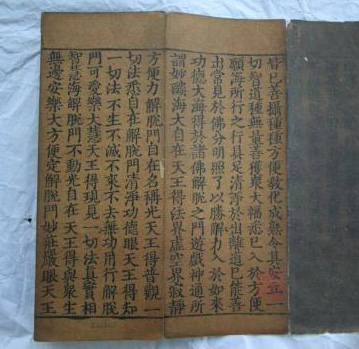 皆已善攝種種方便教化成熟令其安立一
切智道種無量善獲眾大福悉已入於方便
願海所行之行具足清淨於出離道已能善
出常見於佛分明照了以勝解力入於如來
功德大海得於諸佛解脫之門遊戲神通所
謂妙焰海大自在天王得法界虛空界寂靜
方便力解脫門自在名稱光天王得普觀一
切法悉自在解脫門清淨功德眼天王得知
一切法不生不滅不來不去無功用行解脫
門可愛樂大慧天王得現見一切法真實相
智慧海解脫門不動光自在天王得與眾生
無邊安樂大方便定解脫門妙莊嚴眼天王